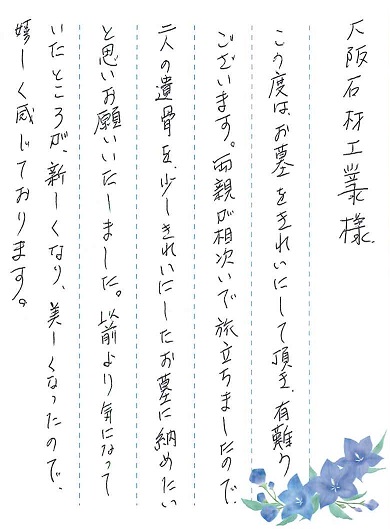 大阪石材工業様
この度は、お墓をきれいにして頂き、有難う
ございます。両親が相次いで旅立ちましたので、
二人の遺骨を、少しきれいにしたお墓に納めたい
と思いお願いいたしました。以前より気になって
いたところが、新しくなり、美しくなったので、
嬉しく感じております。